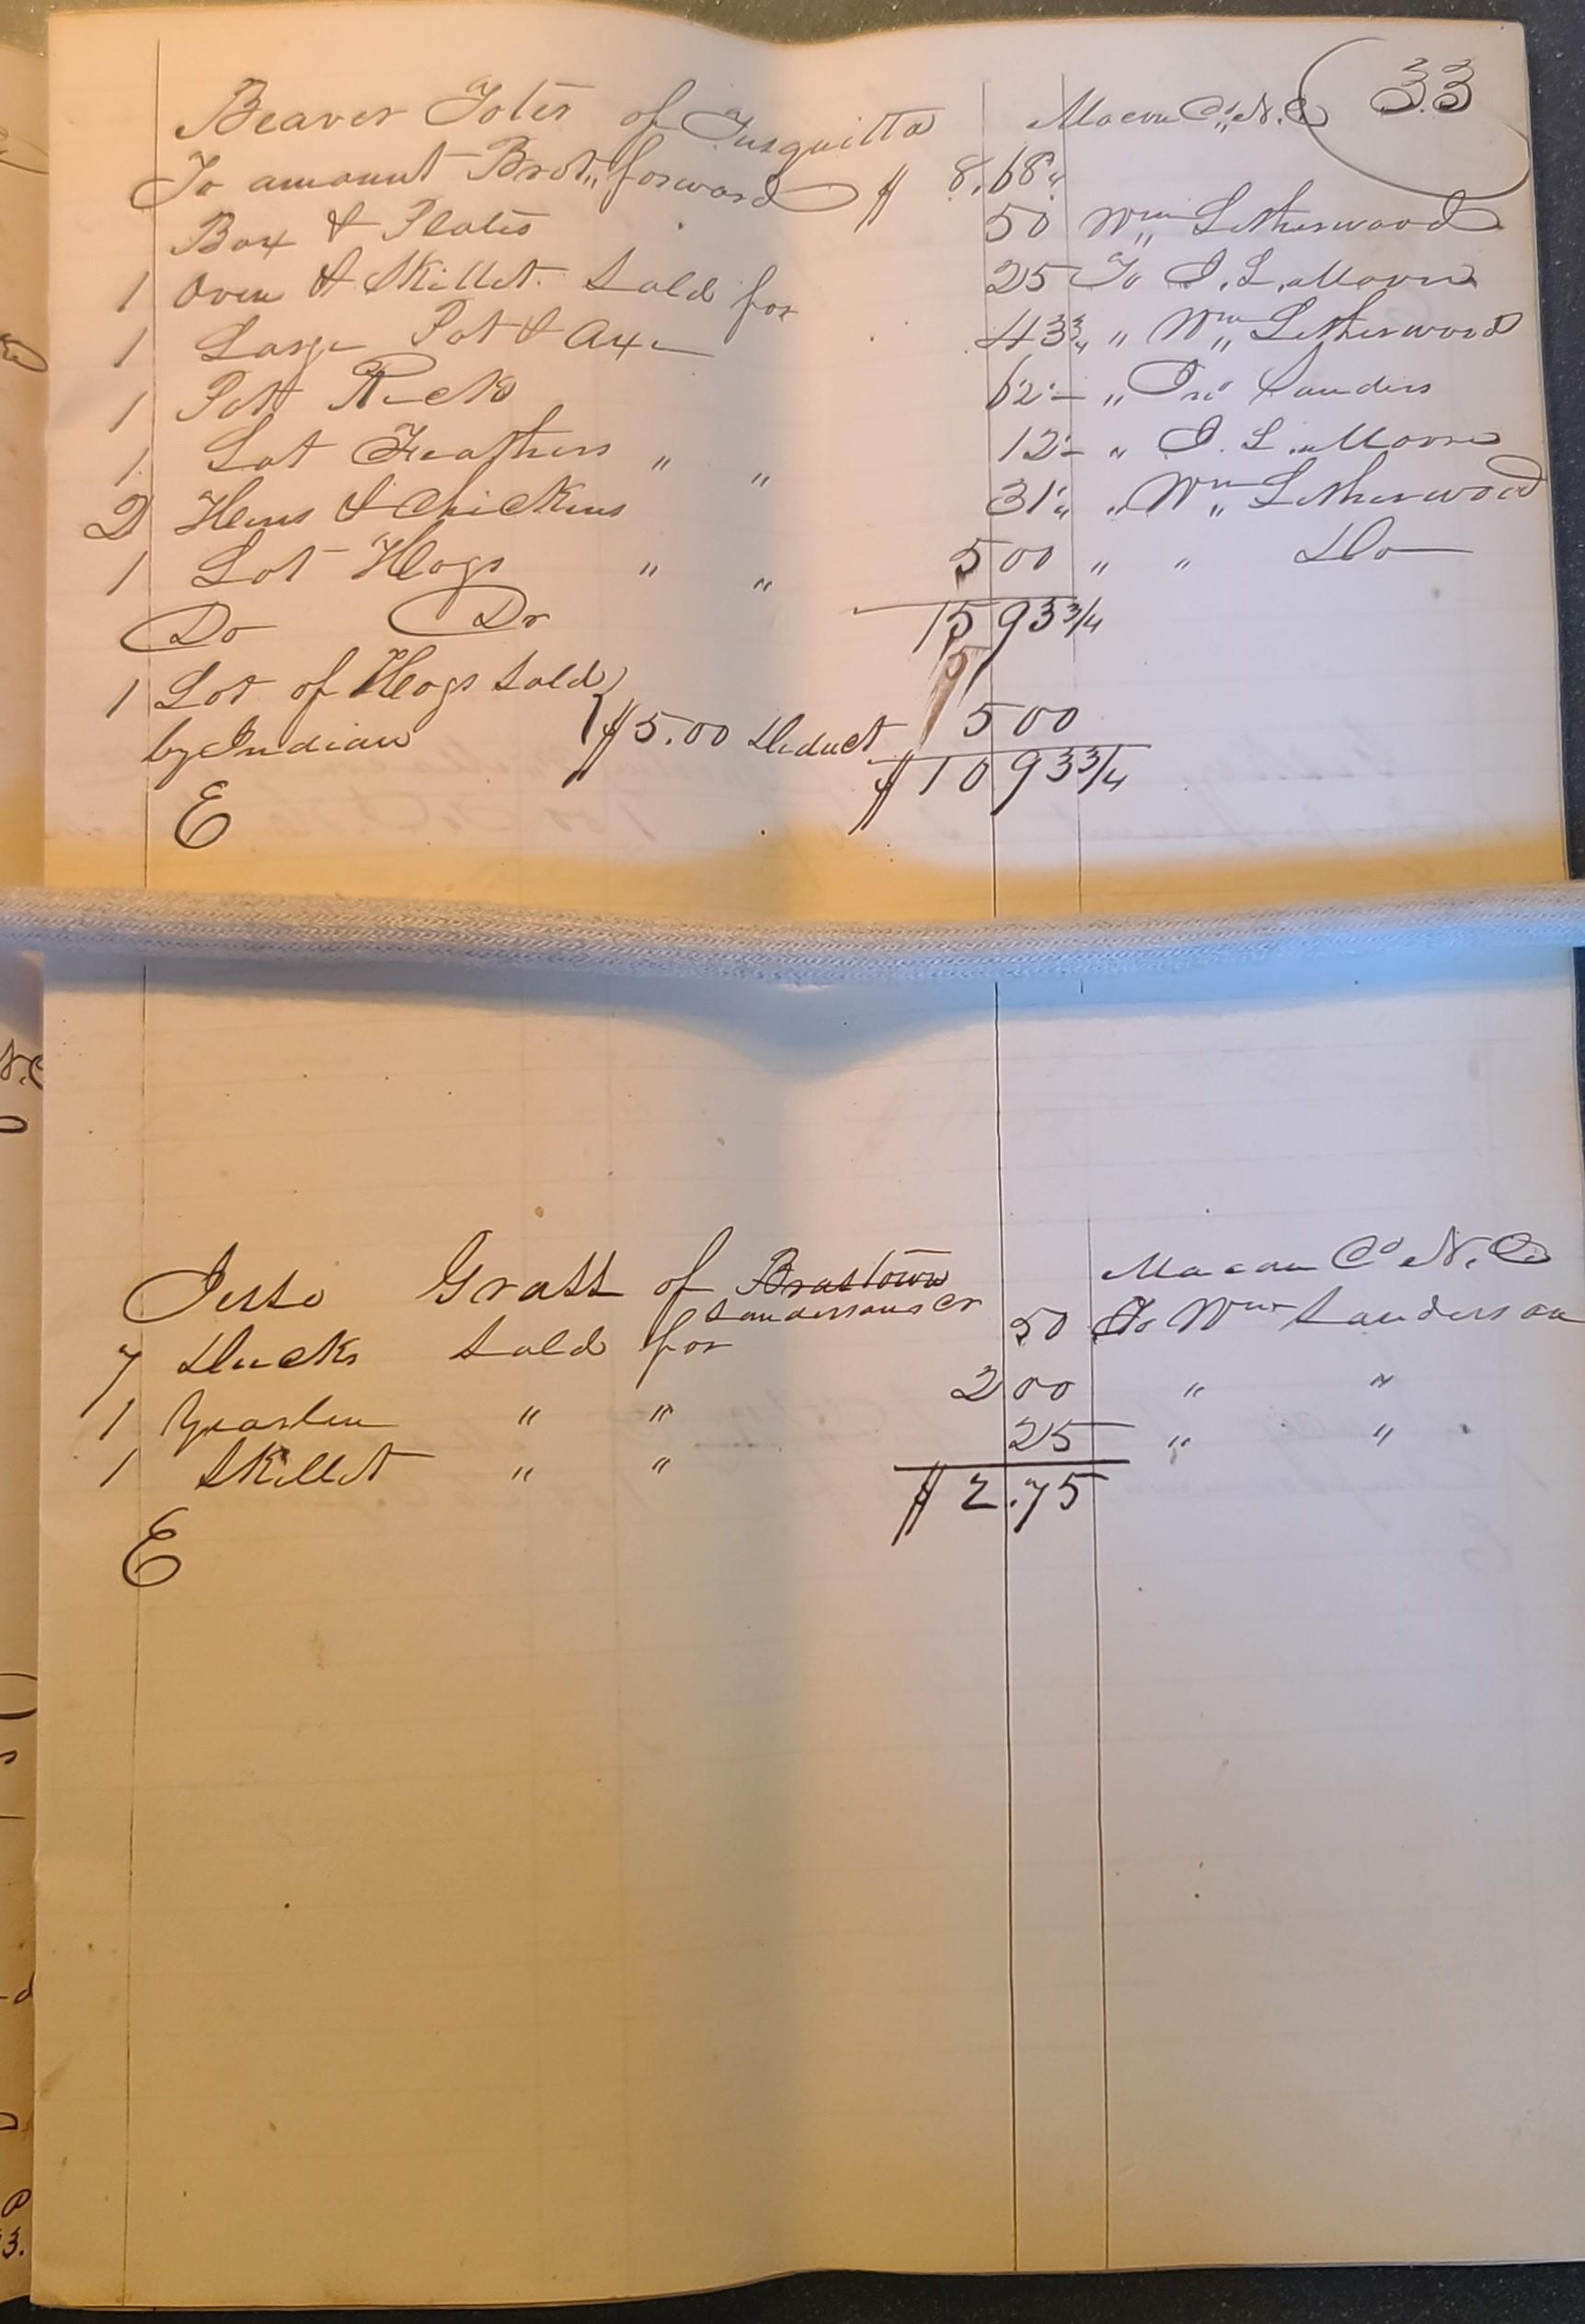 33
Beaver Totes of Tusquitta Macon Co,, N.C
To amount Brot,, forward $ 8.68 3/4
Box & Plates 50 Wm,, Letherwood
1 Oven & Skillet Sold for 25 To J. L. Moore
1 Large Pot & Axe 43 3/4 " Wm,, Letherwood
1 Pott Rack 62 1/2 " Jno Sanders
1 Lot Feathers " " 12 1/2 " J. L. Moore
2 Hens & Chickens 31 1/4 " Wm,, Letherwood
1 Lot Hogs " " 5 00 " " Do
Do Dr 15 93 3/4
1 Lot of Hogs Sold
by Indian $5.00 Deduct 5 00
$10 93 3/4
E
Jesse Grass of Brastown Macon Co N.C
Sandersons Cr
7 Ducks Sold for 50 To Wm Sanderson
1 Yearlen " " 2 00 " "
1 Skillet " " 25 " "
$2.75
E